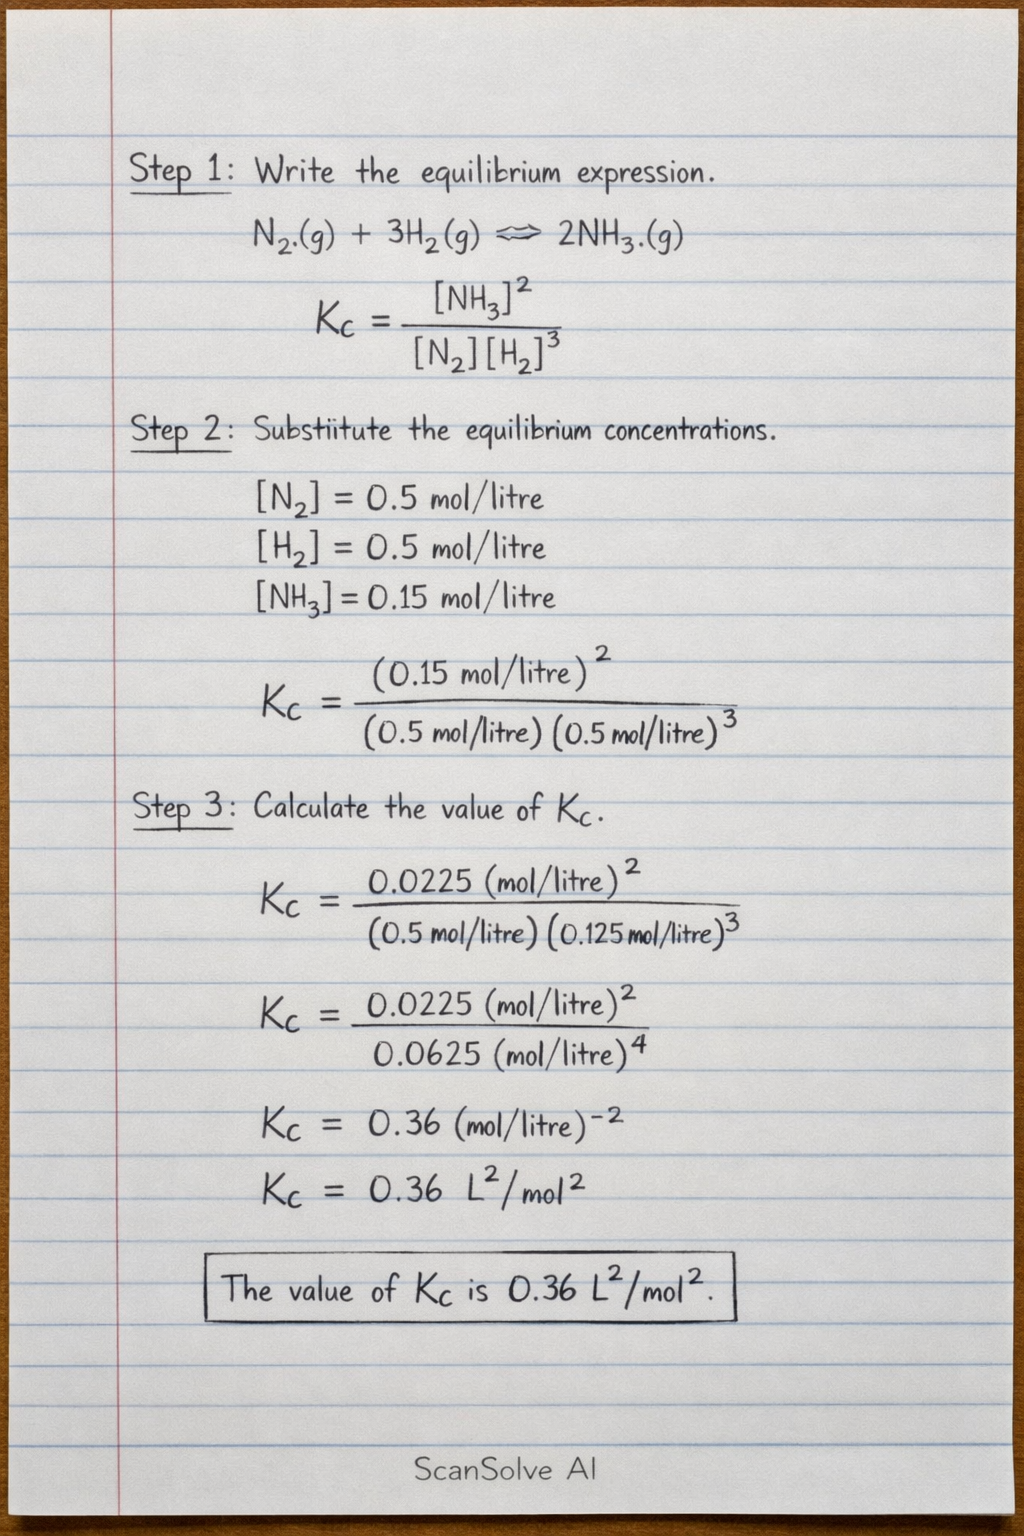 Step 1: Write the equilibrium expression.
N₂.(g) + 3H₂(g) ⇌ 2NH₃.(g)
Kc = [NH₃]² / [N₂][H₂]³
Step 2: Substiitute the equilibrium concentrations.
[N₂] = 0.5 mol/litre
[H₂] = 0.5 mol/litre
[NH₃] = 0.15 mol/litre
Kc = (0.15 mol/litre)² / (0.5 mol/litre) (0.5 mol/litre)³
Step 3: Calculate the value of Kc.
Kc = 0.0225 (mol/litre)² / (0.5 mol/litre) (0.125 mol/litre)³
Kc = 0.0225 (mol/litre)² / 0.0625 (mol/litre)⁴
Kc = 0.36 (mol/litre)⁻²
Kc = 0.36 L²/mol²
The value of Kc is 0.36 L²/mol².
ScanSolve AI